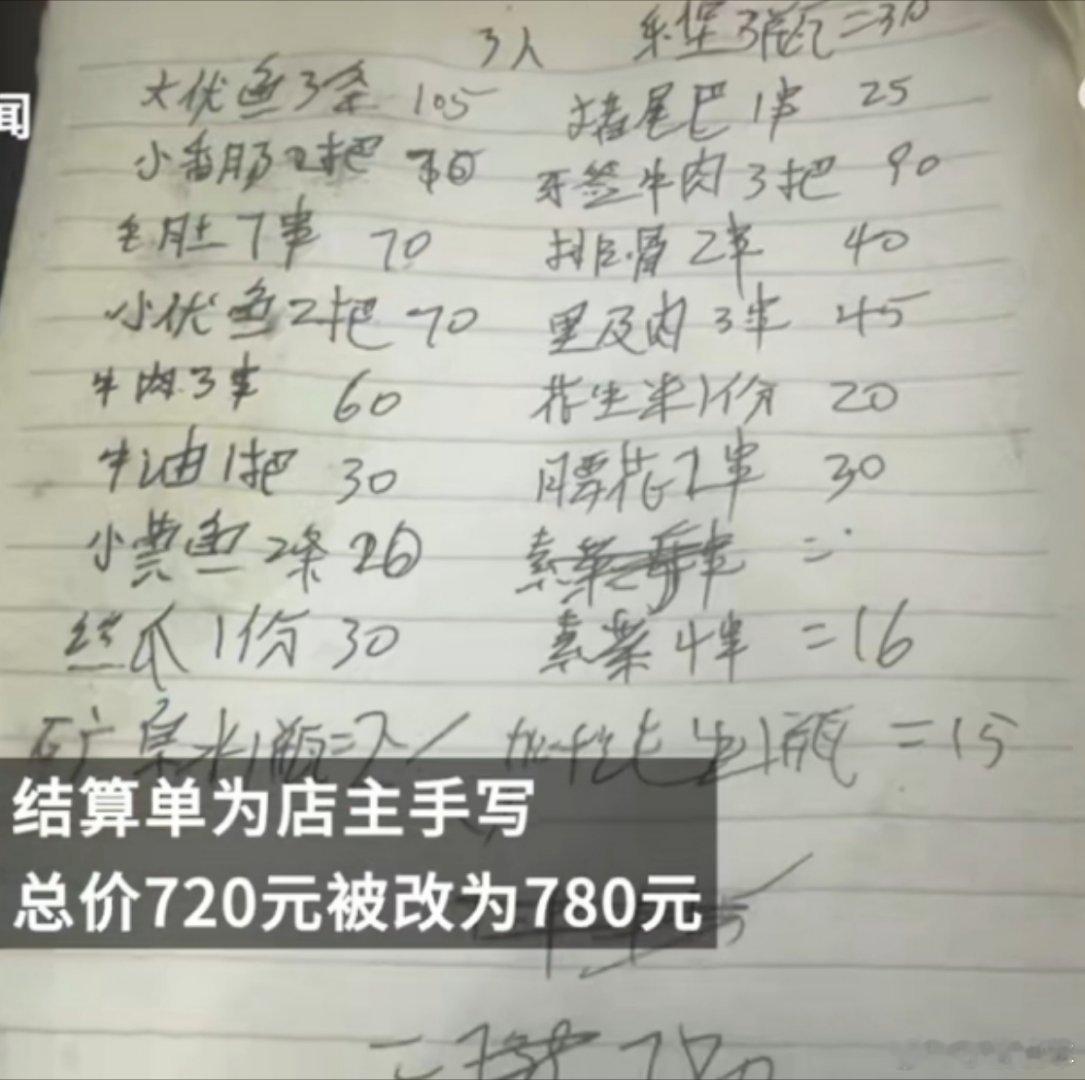 3人 乐堡3瓶=30
大优鱼3条 105 猪尾巴1串 25
小香肠2把 牙签牛肉3把 90
毛肚7串 70 排骨2串 40
小优鱼2把 70 里及肉3串 45
牛肉3串 60 花生米1份 20
牛油1把 30 腰花2串 30
小黄鱼2条 26 素菜 串 =
丝瓜1份 30 素菜4串 =16
矿泉水1瓶=2 / 1瓶 =15
闻
结算单为店主手写
总价720元被改为780元
= 780